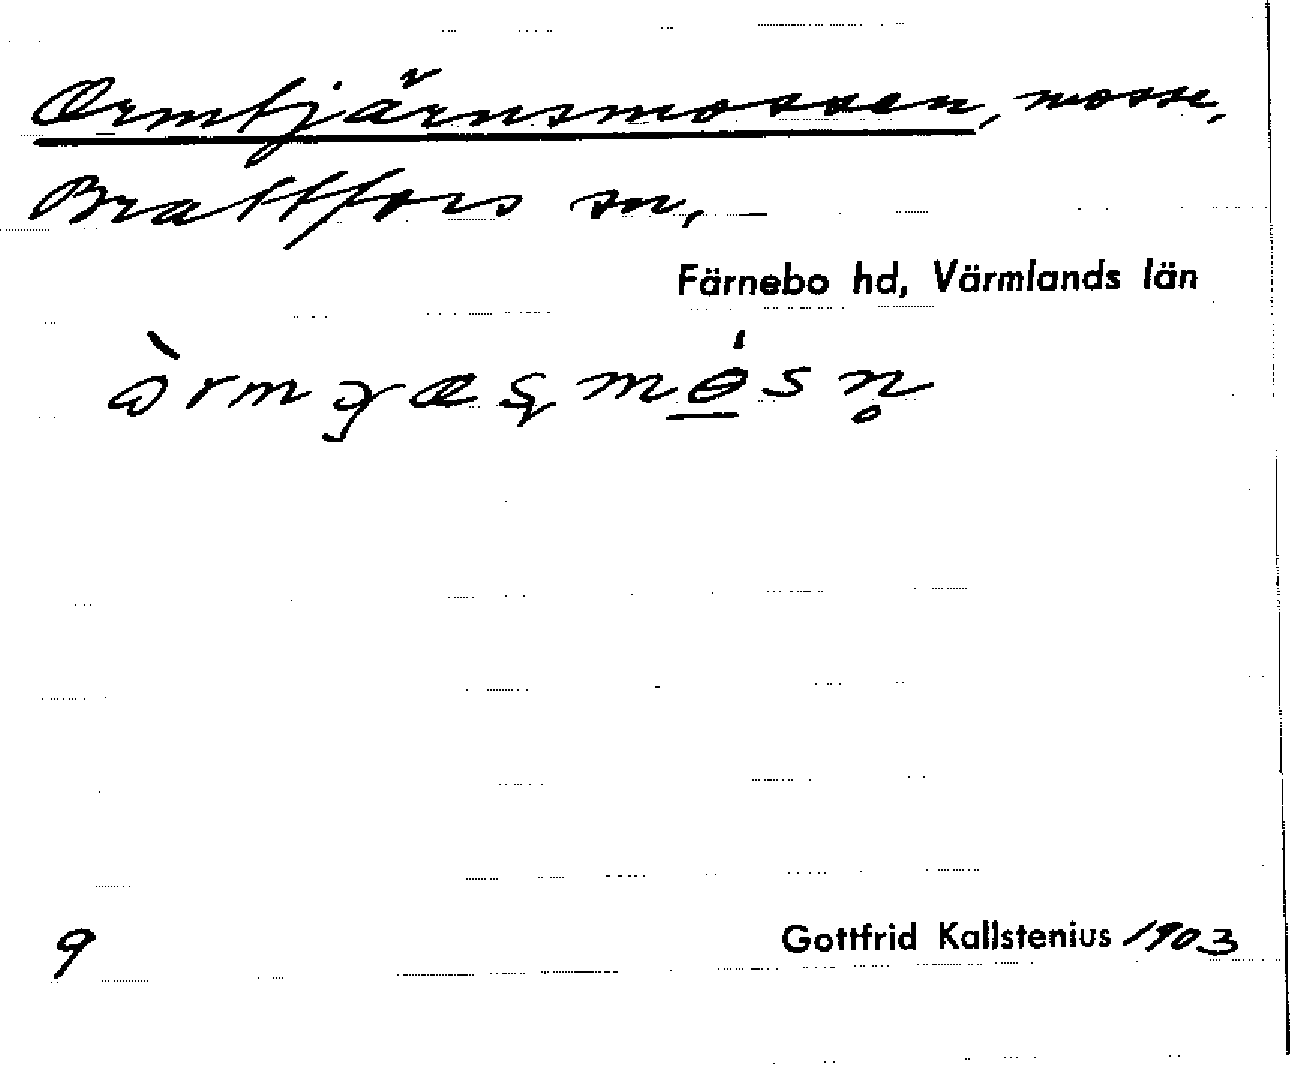 Ormtjärnsmossen, mosse,
Brattfors sn,
Färnebo hd, Värmlands län
9
Gottfrid Kallstenius 1903